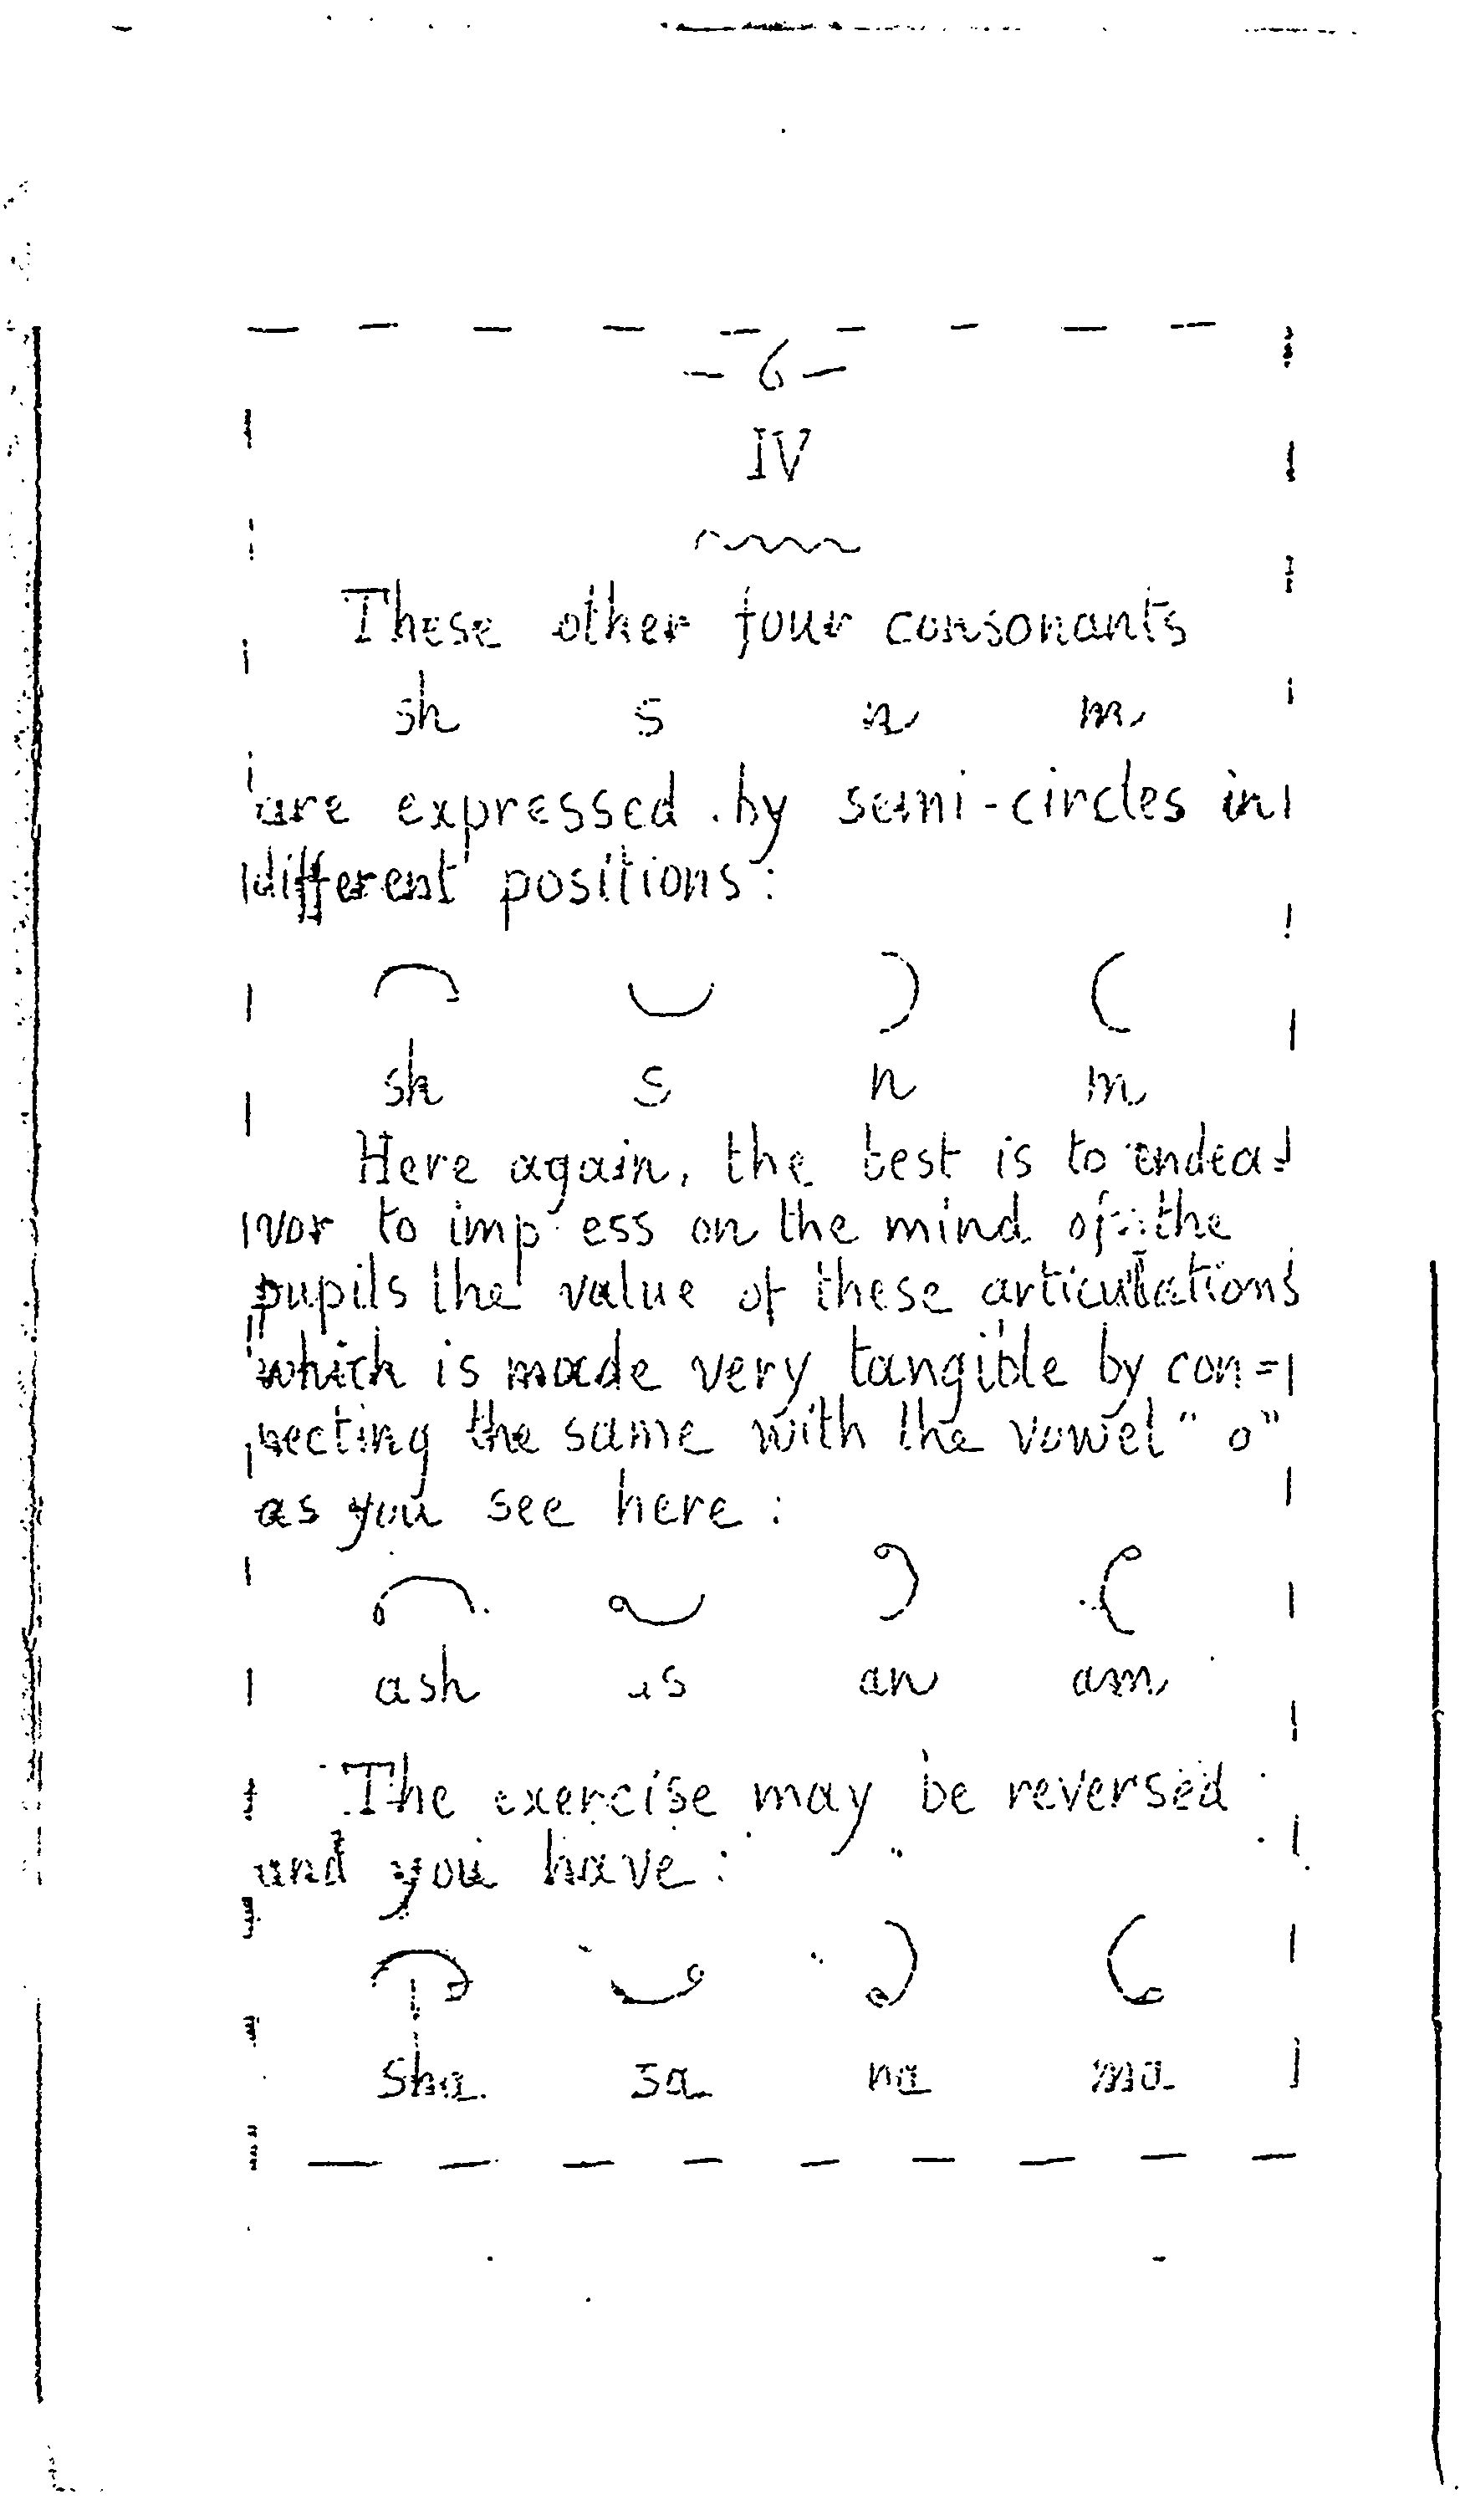 - 6 -
IV
These other four consonants
sh s n m
are expressed by semi-circles in
different positions:
sh s n m
Here again, the best is to endea-
vor to imp ess on the mind of the
pupils the value of these articulations
which is made very tangible by con=
necting the same with the vowel "o"
as you see here:
ash as an am
The exercise may be reversed
and you have:
sha sa na ma